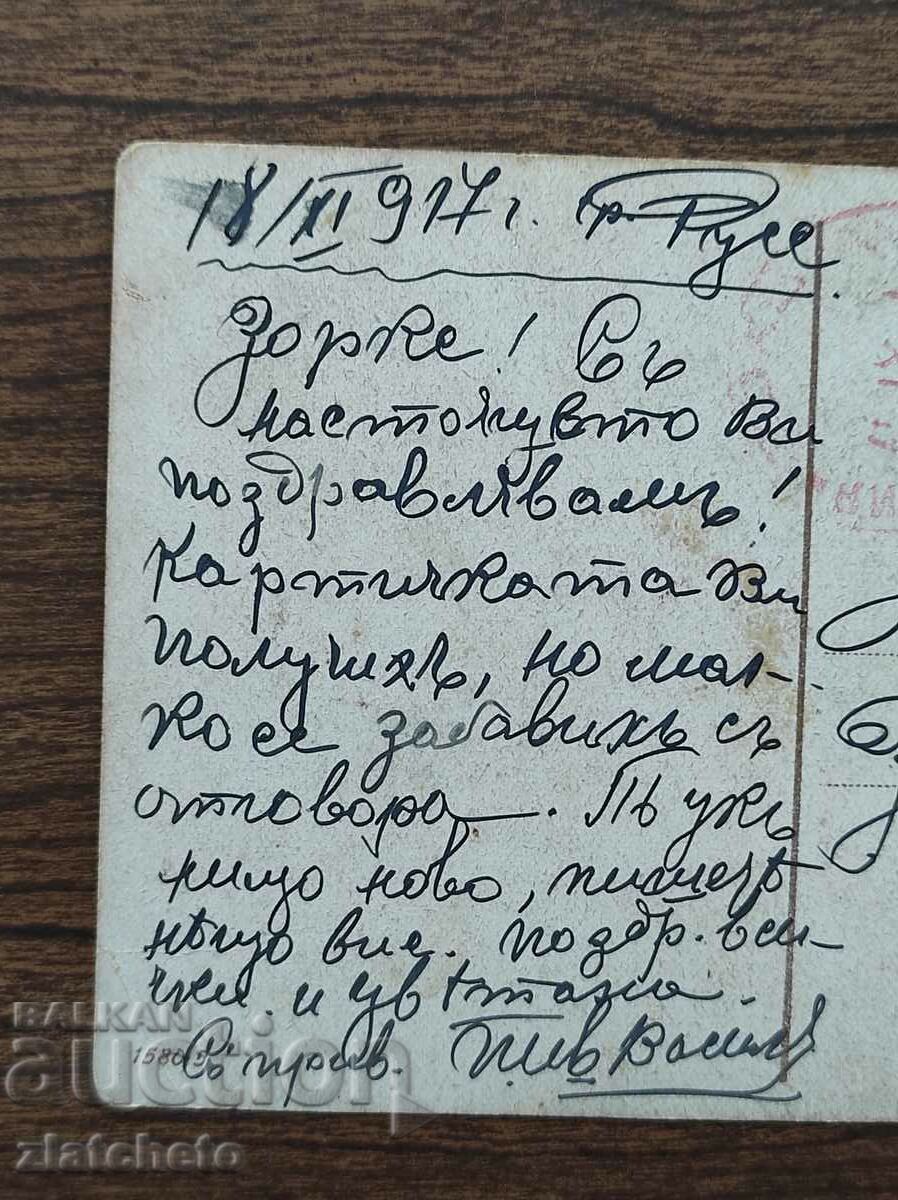 18/XI 917 г. гр. Русе
Зорке! Съ
настоящето Ви
поздравлявамъ!
Картичката Ви
получихъ, но мал-
ко се забавихъ съ
отговора. Тъ ужъ
нищо ново, пишете
нѣщо вие. поздр. вси-
чки и Цвѣтана.
Съ прив. Василъ
15866
BALKAN
auction
zlatcheto